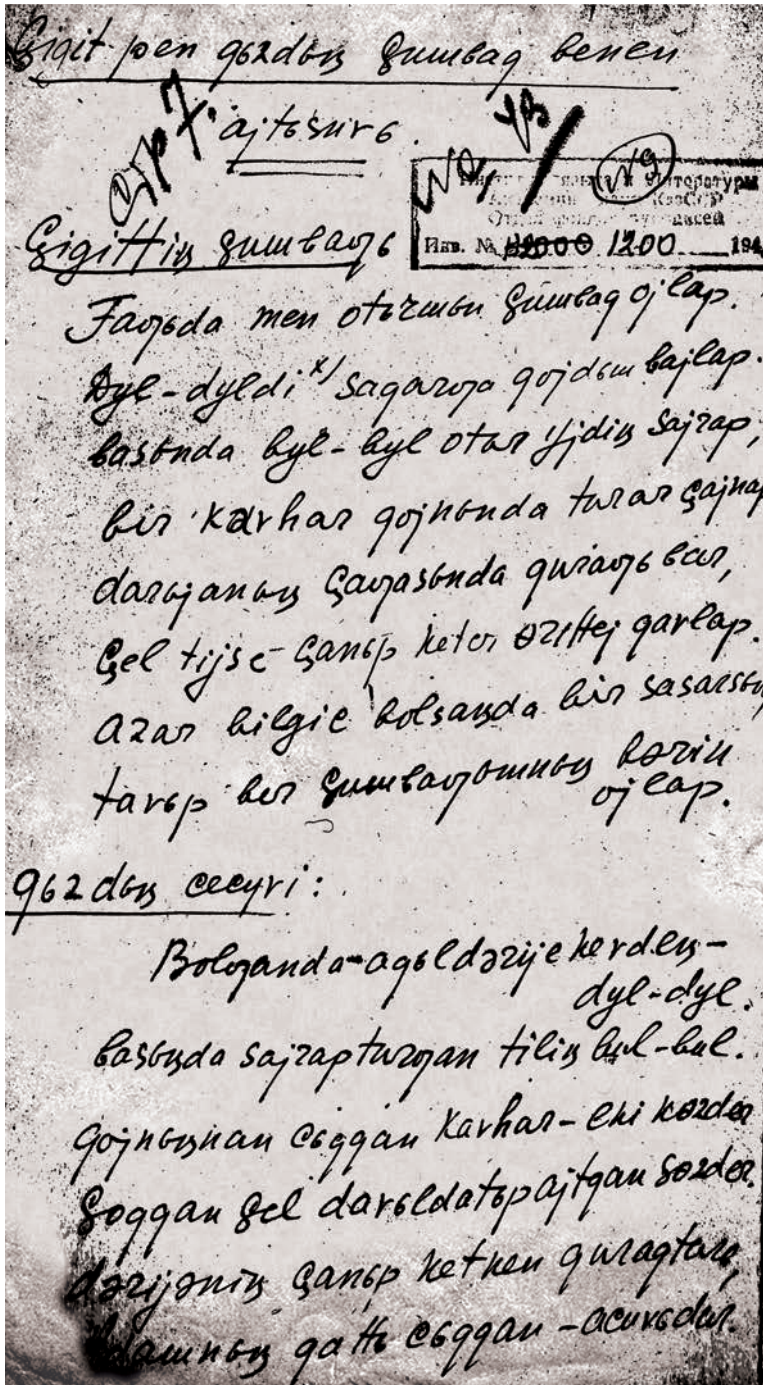 Çigit pen qьzdьꞑ çumbaq benen
ajtьsuvь.
стр 7.
№ 9
Инв. № 1200 194
Çigittiꞑ çumbaƣь
Taƣьda men otьrmьn çumbaq ojlap.
Dyl-dyldi x) saqarƣa qojdьm bajlap.
basьnda byl-byl otьr yjdiꞑ sajrap,
bir kavhar qojnьnda turar çajnap
darьjanьꞑ çaƣasьnda quraƣь bar,
çel tijse çanьp keter ərttej qavlap.
azar bilgic bolsaꞑda bir sasarsьꞑ,
tavьp ber çumbaƣьmnьꞑ bərin
ojlap.
qьzdьꞑ cecyvi:
Bolƣanda-aqьl dərije kevdeꞑ-
dyl-dyl.
basьꞑda sajrap turƣan tiliꞑ byl-byl.
qojnьꞑnan cьqqan kavhar-eki kɵzder
soqqan çel davьldatьp ajtqan sɵzder.
dərijəniꞑ çanьp ketken quraqtarь,
adamnьꞑ qattь cьqqan -acuvьdьr.